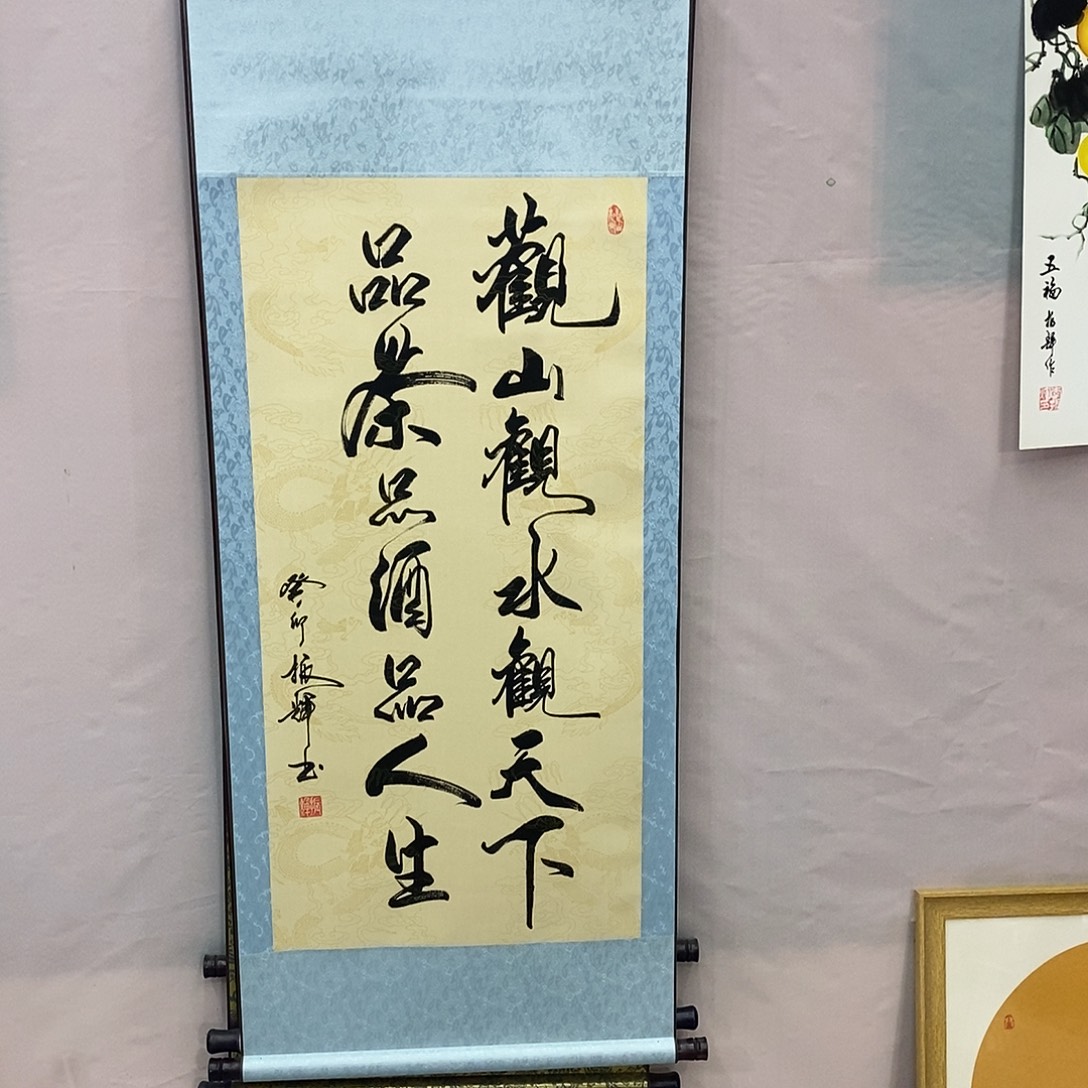 觀山觀水觀天下
品茶品酒品人生
癸卯振輝书
五福 振輝作